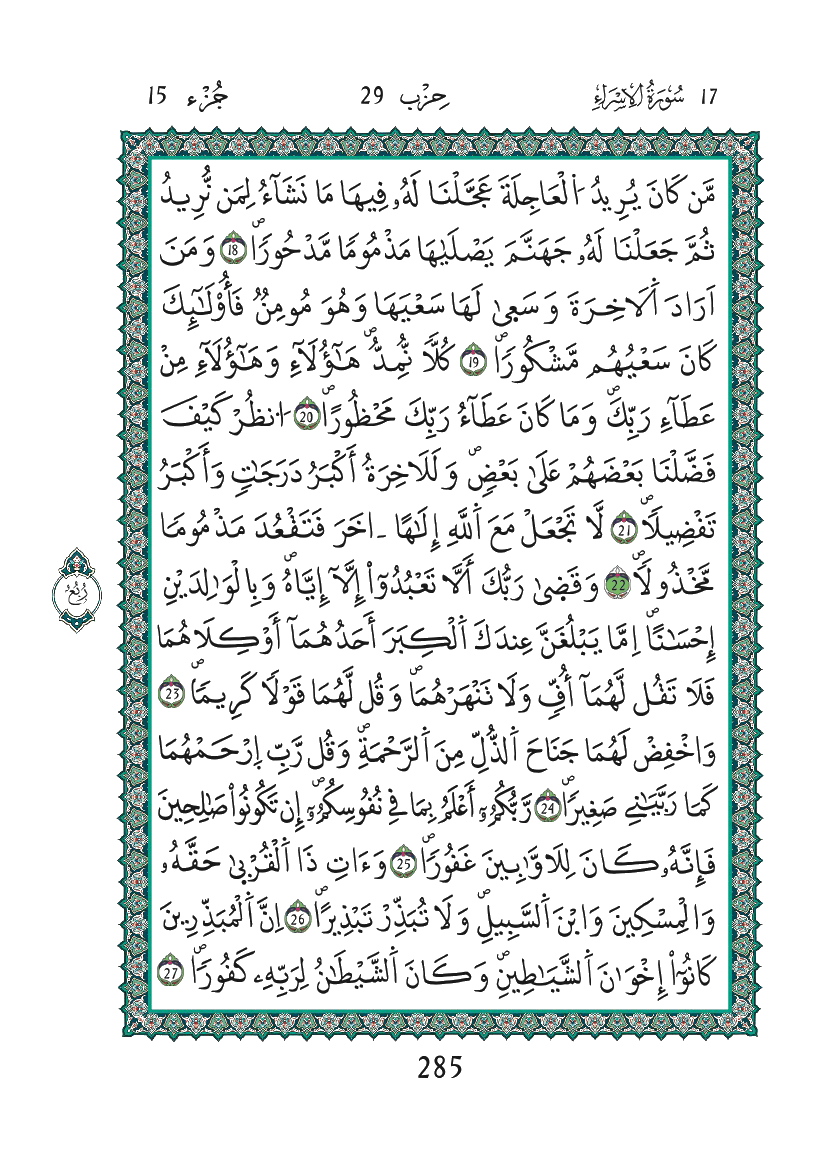 17 سُورَةُ الإِسْرَاءِ حِزْب 29 جُزْء 15
مَّن كَانَ يُرِيدُ اُ۬لْعَاجِلَةَ عَجَّلْنَا لَهُۥ فِيهَا مَا نَشَآءُ لِمَن نُّرِيدُ
ثُمَّ جَعَلْنَا لَهُۥ جَهَنَّمَ يَصْلَىٰهَا مَذْمُومًا مَّدْحُورًاۖ 18 وَمَنَ
اَرَادَ اَ۬لَاخِرَةَ وَسَعىٰ لَهَا سَعْيَهَا وَهُوَ مُومِنٌ فَأُوْلَٰٓئِكَ
كَانَ سَعْيُهُم مَّشْكُورًاۖ 19 كُلًّا نُّمِدُّۖ هَٰٓؤُلَآءِ وَهَٰٓؤُلَآءِ مِنْ
عَطَآءِ رَبِّكَۖ وَمَا كَانَ عَطَآءُ رَبِّكَ مَحْظُورًاۖ 20 اَ۟نظُرْ كَيْفَ
فَضَّلْنَا بَعْضَهُمْ عَلَىٰ بَعْضٍۖ وَلَلَاخِرَةُ أَكْبَرُ دَرَجَٰتٍ وَأَكْبَرُ
تَفْضِيلًاۖ 21 لَّا تَجْعَلْ مَعَ اَ۬للَّهِ إِلَٰهًا ـاخَرَ فَتَقْعُدَ مَذْمُومًا
مَّخْذُولًاۖ 22 وَقَضىٰ رَبُّكَ أَلَّا تَعْبُدُوٓاْ إِلَّآ إِيَّاهُۖ وَبِالْوَٰلِدَيْنِ
إِحْسَٰنًاۖ اِمَّا يَبْلُغَنَّ عِندَكَ اَ۬لْكِبَرَ أَحَدُهُمَآ أَوْ كِلَاهُمَا
فَلَا تَقُل لَّهُمَآ أُفٍّ وَلَا تَنْهَرْهُمَاۖ وَقُل لَّهُمَا قَوْلًا كَرِيمًاۖ 23
وَاخْفِضْ لَهُمَا جَنَاحَ اَ۬لذُّلِّ مِنَ اَ۬لرَّحْمَةِۖ وَقُل رَّبِّ اِ۪رْحَمْهُمَا
كَمَا رَبَّيَٰنِے صَغِيرًاۖ 24 رَّبُّكُمُۥٓ أَعْلَمُ بِمَا فِے نُفُوسِكُمُۥٓۖ إِن تَكُونُواْ صَٰلِحِينَ
فَإِنَّهُۥ كَانَ لِلَاوَّٰبِينَ غَفُورًاۖ 25 وَءَاتِ ذَا اَ۬لْقُرْبىٰ حَقَّهُۥ
وَالْمِسْكِينَ وَابْنَ اَ۬لسَّبِيلِۖ وَلَا تُبَذِّرْ تَبْذِيرًاۖ 26 اِنَّ اَ۬لْمُبَذِّرِينَ
كَانُوٓاْ إِخْوَٰنَ اَ۬لشَّيَٰطِينِۖ وَكَانَ اَ۬لشَّيْطَٰنُ لِرَبِّهِۦ كَفُورًاۖ 27
رُبُع
285